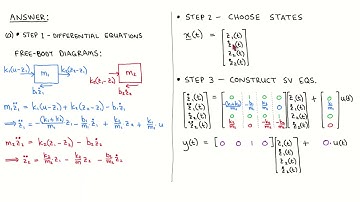 ANSWER:
(a) • STEP 1 - DIFFERENTIAL EQUATIONS
FREE-BODY DIAGRAMS:
k₁(u-z₁) m₁ k₂(z₂-z₁)
b₁ż₁
k₂(z₁-z₂) m₂
b₂ż₂
m₁z̈₁ = k₁(u-z₁) + k₂(z₂-z₁) - b₁ż₁
⇒ z̈₁ = -(k₁+k₂)/m₁ z₁ - b₁/m₁ ż₁ + k₂/m₁ z₂ + k₁/m₁ u
m₂z̈₂ = k₂(z₁-z₂) - b₂ż₂
⇒ z̈₂ = k₂/m₂ z₁ - k₂/m₂ z₂ - b₂/m₂ ż₂
• STEP 2 - CHOOSE STATES
x(t) = [z₁(t)
ż₁(t)
z₂(t)
ż₂(t)]
• STEP 3 - CONSTRUCT SV EQS.
[ż₁(t) [0 1 0 0 [z₁(t) [0
z̈₁(t) -(k₁+k₂)/m₁ -b₁/m₁ k₂/m₁ 0 ż₁(t) k₁/m₁
ż₂(t) = 0 0 0 1 z₂(t) + 0 u(t)
z̈₂(t)] k₂/m₂ 0 -k₂/m₂ -b₂/m₂] ż₂(t)] 0]
y(t) = [0 0 1 0] [z₁(t) + 0·u(t)
ż₁(t)
z₂(t)
ż₂(t)]